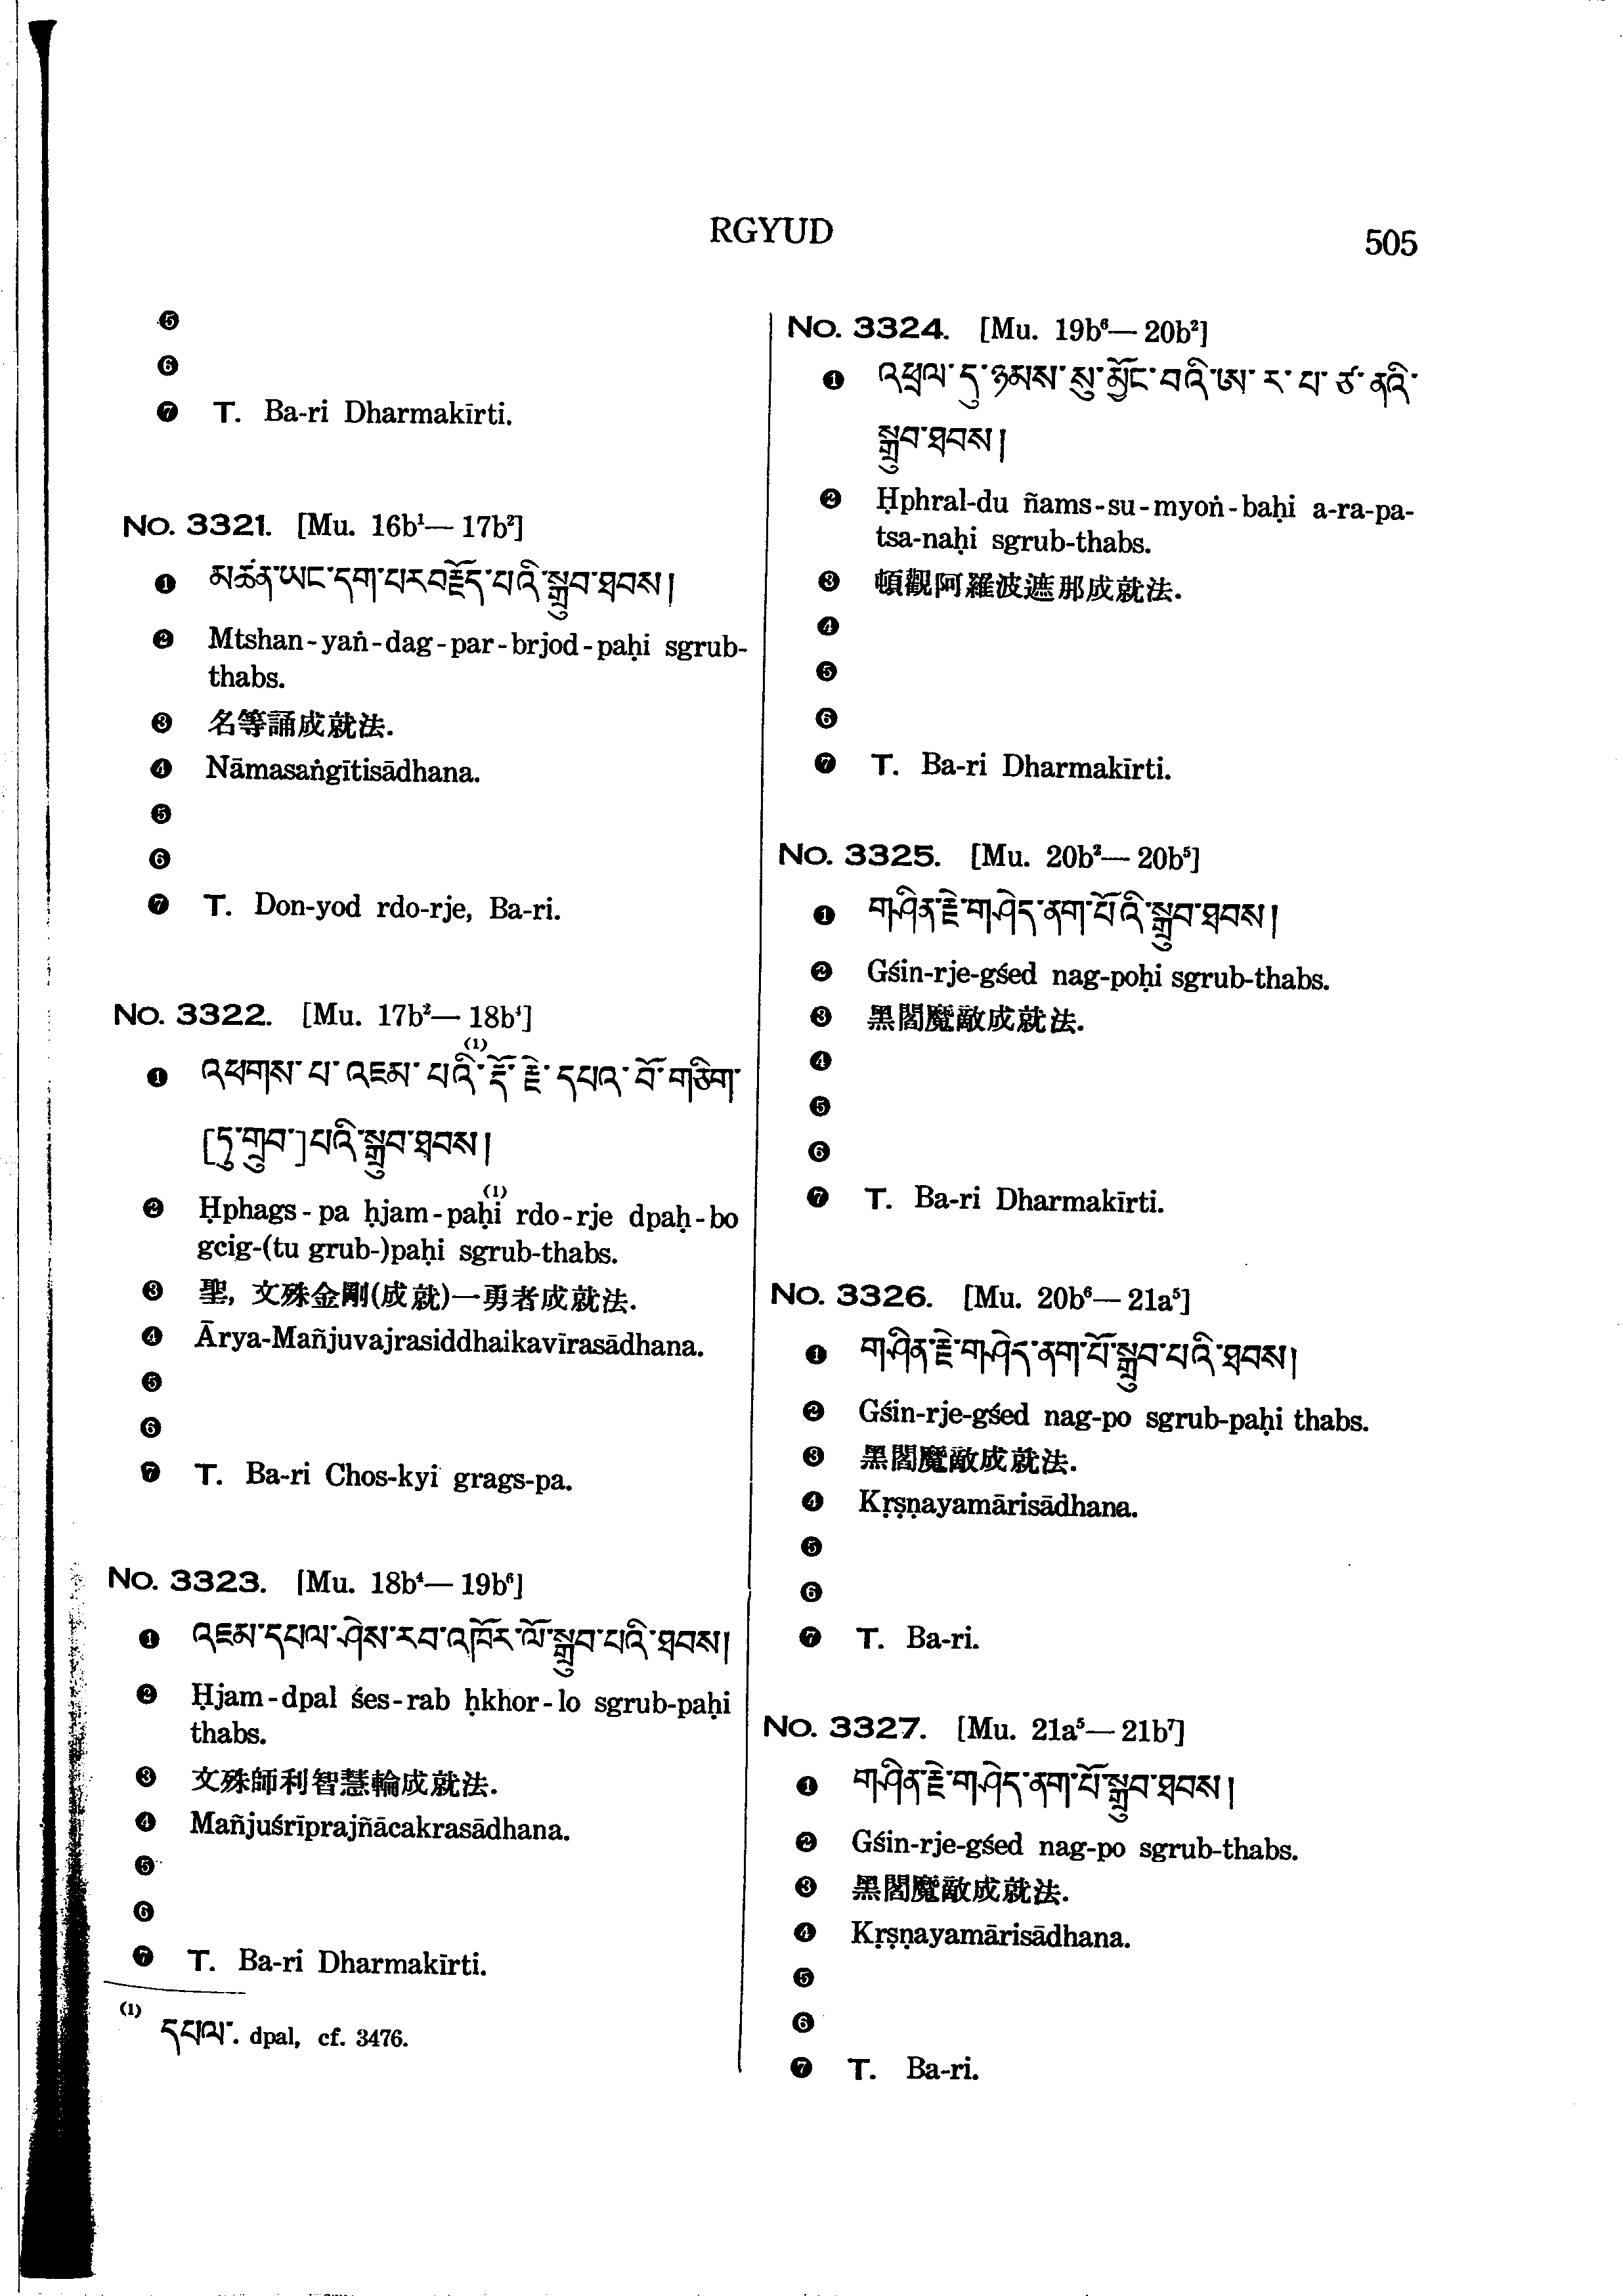 RGYUD
505
❺
❻
❼ T. Ba-ri Dharmakīrti.
No. 3321. [Mu. 16b¹— 17b²]
❶ མཚན་ཡང་དག་པར་བརྗོད་པའི་སྒྲུབ་ཐབས།
❷ Mtshan-yaṅ-dag-par-brjod-paḥi sgrub-
thabs.
❸ 名等誦成就法.
❹ Nāmasaṅgītisādhana.
❺
❻
❼ T. Don-yod rdo-rje, Ba-ri.
No. 3322. [Mu. 17b²— 18b⁴]
❶ འཕགས་པ་འཇམ་པའི་⁽¹⁾རྡོ་རྗེ་དཔའ་བོ་གཅིག་
[ཏུ་གྲུབ་]པའི་སྒྲུབ་ཐབས།
❷ Ḥphags-pa ḥjam-paḥi⁽¹⁾ rdo-rje dpaḥ-bo
gcig-(tu grub-)paḥi sgrub-thabs.
❸ 聖, 文殊金剛(成就)一勇者成就法.
❹ Ārya-Mañjuvajrasiddhaikavīrasādhana.
❺
❻
❼ T. Ba-ri Chos-kyi grags-pa.
No. 3323. [Mu. 18b⁴— 19b⁶]
❶ འཇམ་དཔལ་ཤེས་རབ་འཁོར་ལོ་སྒྲུབ་པའི་ཐབས།
❷ Ḥjam-dpal śes-rab ḥkhor-lo sgrub-paḥi
thabs.
❸ 文殊師利智慧輪成就法.
❹ Mañjuśrīprajñācakrasādhana.
❺
❻
❼ T. Ba-ri Dharmakīrti.
⁽¹⁾ དཔལ་. dpal, cf. 3476.
No. 3324. [Mu. 19b⁶— 20b²]
❶ འཕྲལ་དུ་ཉམས་སུ་མྱོང་བའི་ཨ་ར་པ་ཙ་ནའི་
སྒྲུབ་ཐབས།
❷ Ḥphral-du ñams-su-myoṅ-baḥi a-ra-pa-
tsa-naḥi sgrub-thabs.
❸ 頓觀阿羅波遮那成就法.
❹
❺
❻
❼ T. Ba-ri Dharmakīrti.
No. 3325. [Mu. 20b²— 20b⁵]
❶ གཤིན་རྗེ་གཤེད་ནག་པོའི་སྒྲུབ་ཐབས།
❷ Gśin-rje-gśed nag-poḥi sgrub-thabs.
❸ 黑閻魔敵成就法.
❹
❺
❻
❼ T. Ba-ri Dharmakīrti.
No. 3326. [Mu. 20b⁶— 21a⁵]
❶ གཤིན་རྗེ་གཤེད་ནག་པོ་སྒྲུབ་པའི་ཐབས།
❷ Gśin-rje-gśed nag-po sgrub-paḥi thabs.
❸ 黑閻魔敵成就法.
❹ Kṛṣṇayamārisādhana.
❺
❻
❼ T. Ba-ri.
No. 3327. [Mu. 21a⁵— 21b⁷]
❶ གཤིན་རྗེ་གཤེད་ནག་པོ་སྒྲུབ་ཐབས།
❷ Gśin-rje-gśed nag-po sgrub-thabs.
❸ 黑閻魔敵成就法.
❹ Kṛṣṇayamārisādhana.
❺
❻
❼ T. Ba-ri.